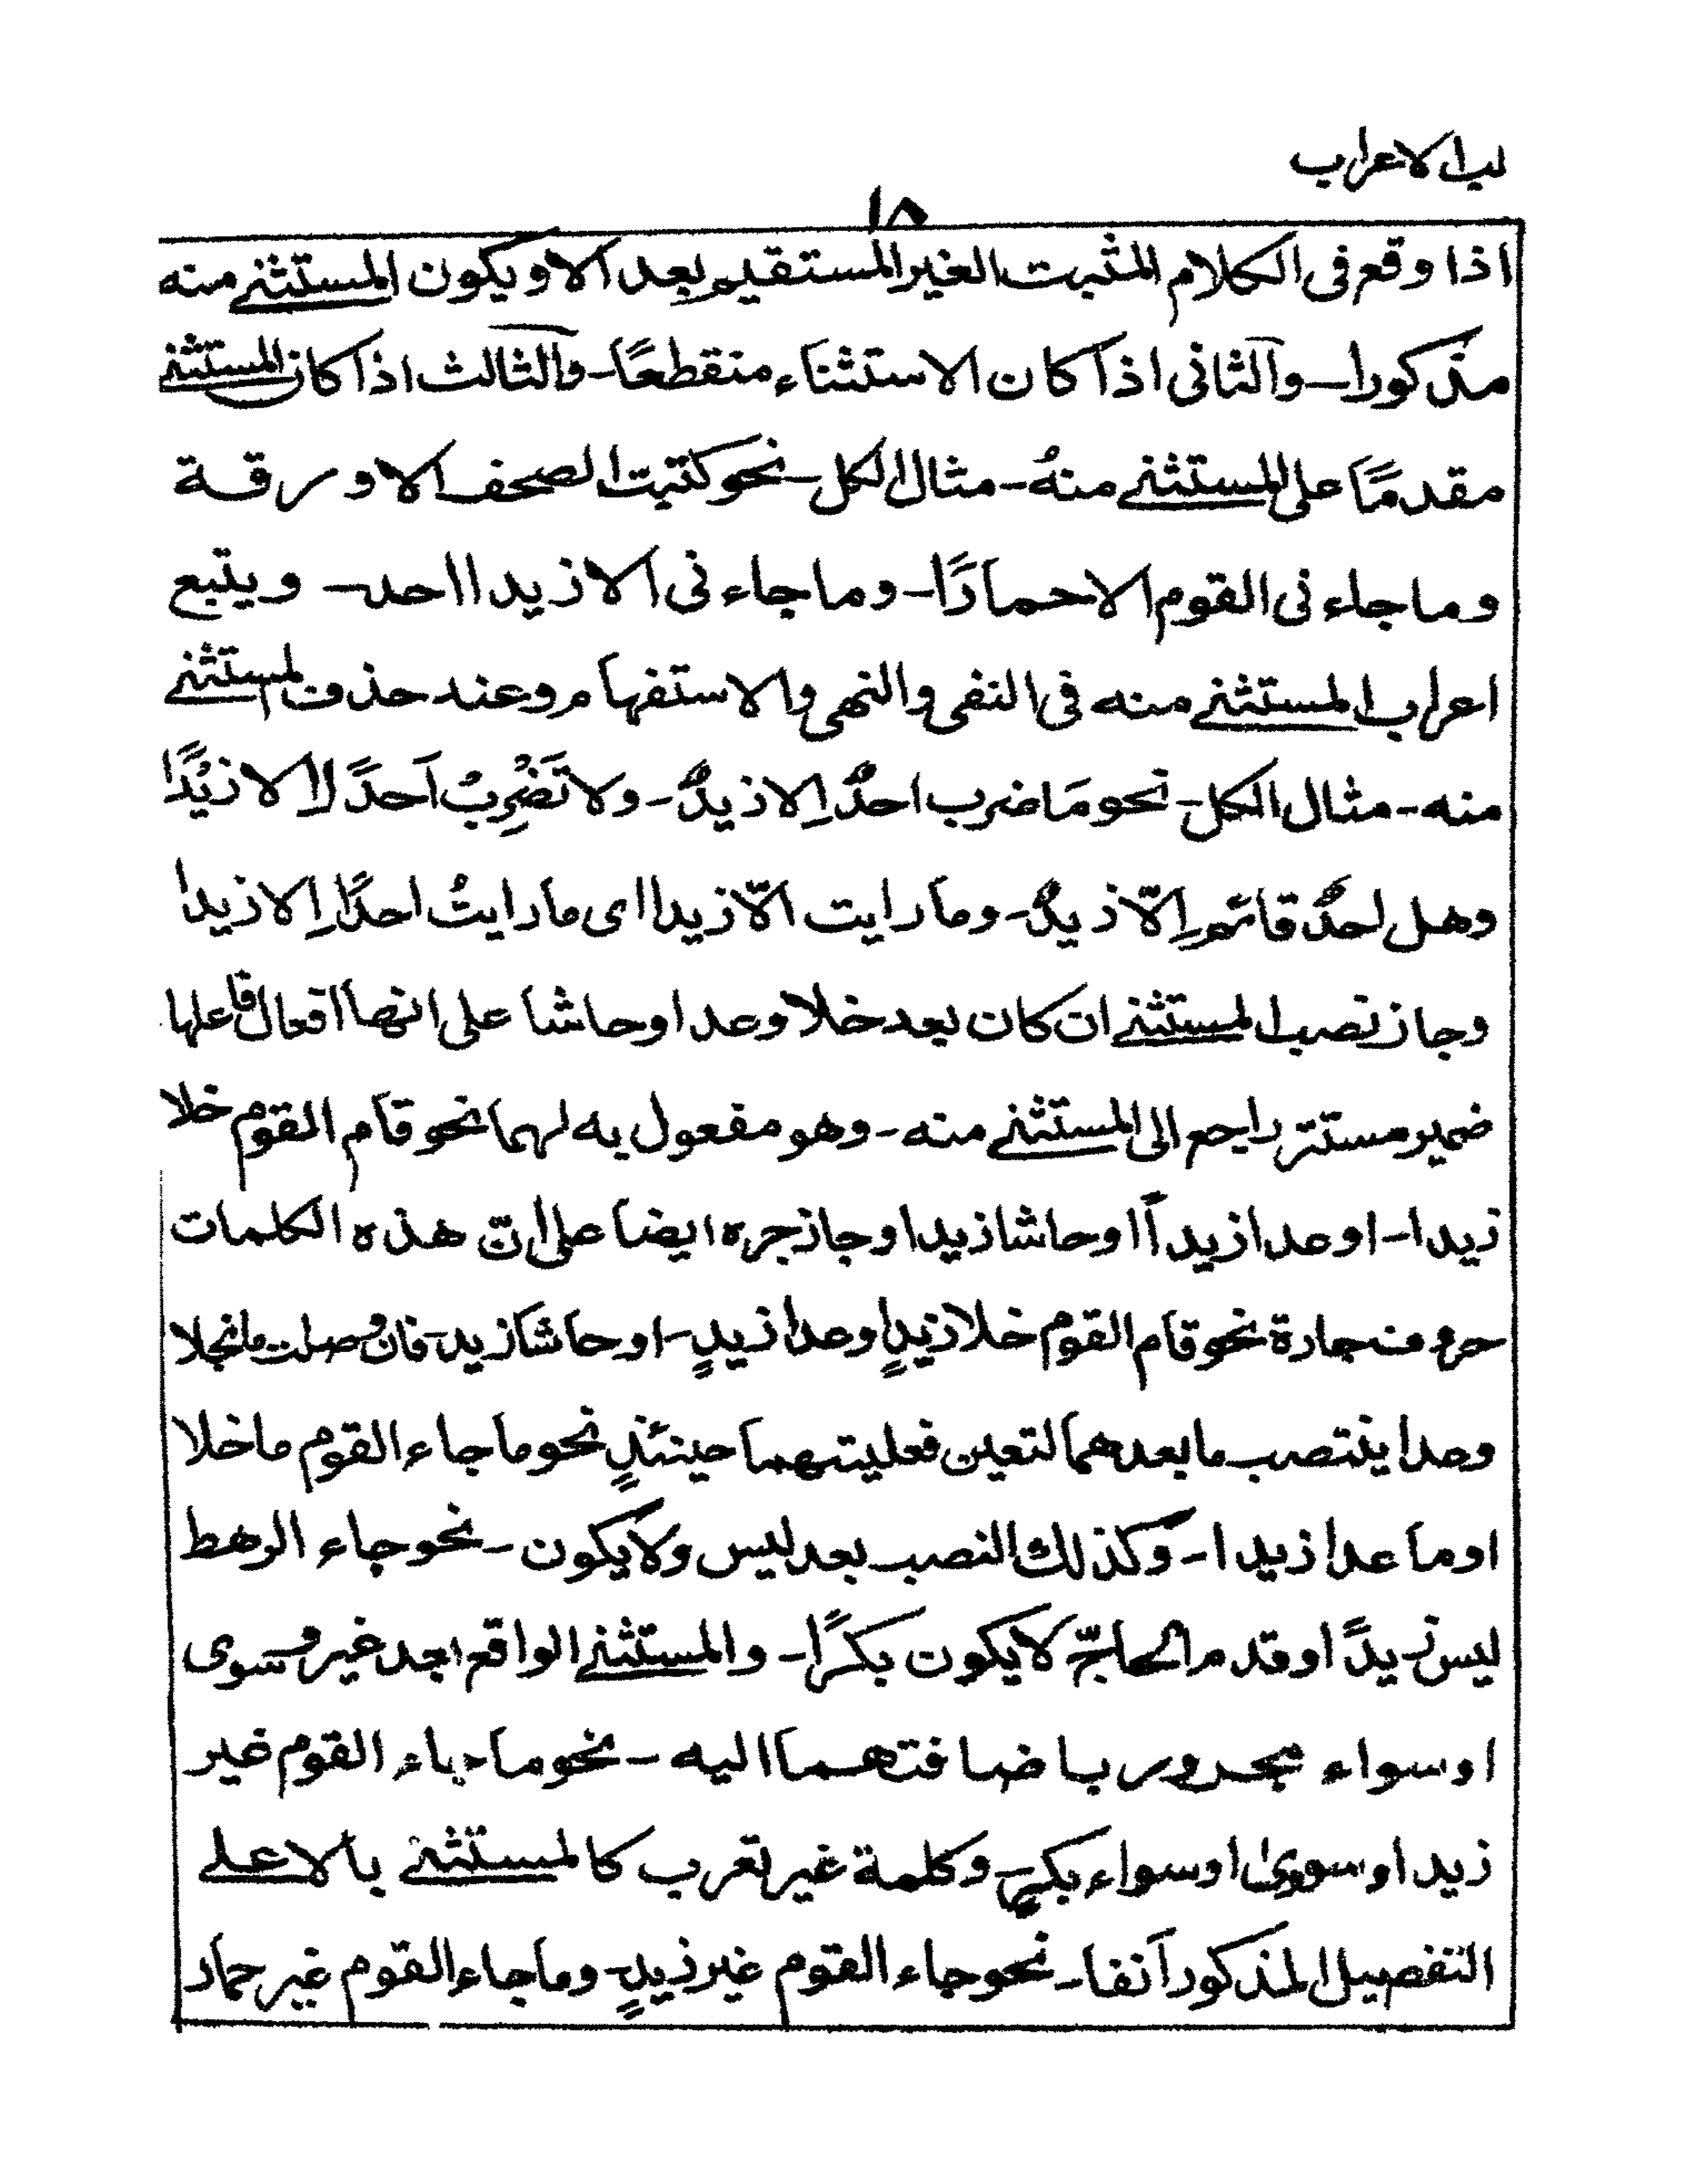 لب الاعراب
١٨
اذا وقع فى الكلام المثبت الغير المستقيم بعد الا ويكون المستثنے منه
مذكورا ـ والثانى اذا كان الاستثناء منقطعًا ـ والثالث اذا كان المستثنے
مقدمًا على المستثنے منهُ ـ مثال الكل ـ نحو كتبت الصحف الا ورقة
وما جاء نى القوم الا حمارًا ـ وما جاء نى الا زيدا احد ـ ويتبع
اعراب المستثنے منه فى النفى والنهى والاستفهام وعند حذف المستثنے
منه ـ مثال الكل ـ نحو مَا ضرب احدٌ اِلا زيدٌ ـ ولا تَضْرِبْ اَحدًا اِلا زيْدًا
وهل احدٌ قائم اِلّا زيدٌ ـ وما رايت الّا زيدا اى ما رايتُ احدًا اِلا زيدا
وجاز نصب المستثنے ان كان بعد خلا وعدا وحاشا على انها افعال فاعلها
ضمير مستتر راجع الى المستثنے منه ـ وهو مفعول به لهما نحو قام القوم خلا
زيدا ـ او عدا زيداً او حاشا زيدا وجاز جره ايضا على انّ هذه الكلمات
حروف جارة نحو قام القوم خلا زيدٍ او عدا زيدٍ ـ او حاشا زيد ـ فان وصلت ما بخلا
وعدا ينتصب ما بعدهما لتعين فعليتهما حينئذٍ نحو ما جاء القوم ما خلا
او ما عدا زيدا ـ وكذلك النصب بعد ليس ولا يكون ـ نحو جاء الرهط
ليس زيدًا وقدم الحاجّ لا يكون بكرًا ـ والمستثنے الواقع بعد غير وسوى
او سواء مجرور باضافتهما اليه ـ نحو ما جاء القوم غير
زيد او سوىٰ او سواء بكرٍ وكلمة غير تعرب كالمستثنے بالا علے
التفصيل المذكور آنفا ـ نحو جاء القوم غير زيدٍ ـ وما جاء القوم غير حمار